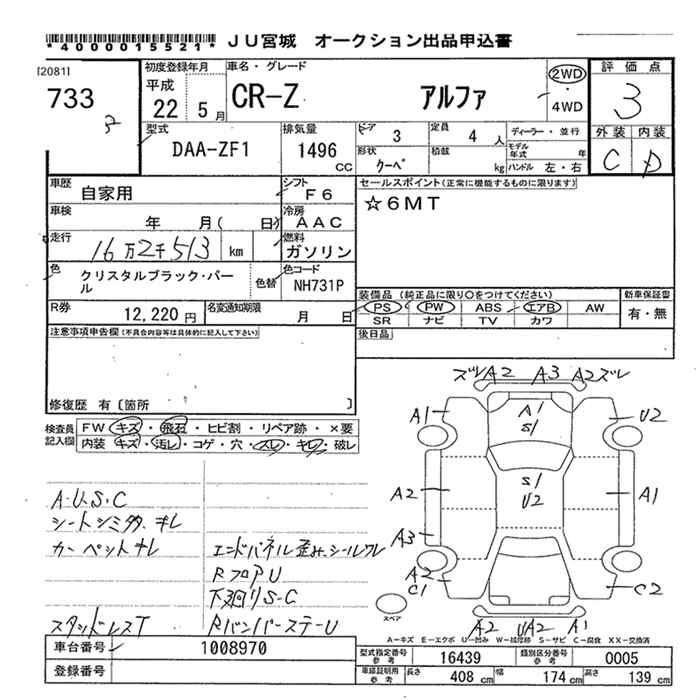 *4000015521* JU宮城 オークション出品申込書
[2081]
733
初度登録年月
平成
22 5月
車名・グレード
CR-Z アルファ
2WD
・
4WD
評価点
3
外装 内装
C D
型式
DAA-ZF1
排気量
1496
CC
ドア 3
形状 クーペ
定員 4 人
積載 kg
ディーラー・並行
モデル年式 年
ハンドル 左・右
車歴 自家用
シフト F6
車検 年 月( 日)
冷房 AAC
走行 16万2千513 km
燃料 ガソリン
色 クリスタルブラック・パール
色替
色コード NH731P
R券 12,220円
名変通知期限 月 日
セールスポイント(正常に機能するものに限ります)
☆6MT
装備品(純正品に限り○をつけてください)
PS PW ABS エアB AW
SR ナビ TV カワ
新車保証書
有・無
注意事項申告欄(不具合内容等は具体的に記入して下さい)
後日品
修復歴 有〔箇所 〕
検査員記入欄
FW キズ・飛石・ヒビ割・リペア跡・×要
内装 キズ・汚レ・コゲ・穴・スレ・キレ・破レ
A・U・S・C
シートシミタ、キレ
カーペットキレ
エンドパネル歪み、シールワレ
RフロアU
下廻りS・C
スタッドレスT
RバンパーステーU
ズレA2 A3 A2ズレ
A1 A1 U2
S1
S1
A2 U2 A1
A3
A2
C1 C2
A2 UA2 A1
スペア
A-キズ E-エクボ U-凹み W-補修跡 S-サビ C-腐食 XX-交換済
車台番号 1008970
登録番号
型式指定番号 参考 16439
類別区分番号 参考 0005
車庫証明用 参考 長さ 408 cm 幅 174 cm 高さ 139 cm